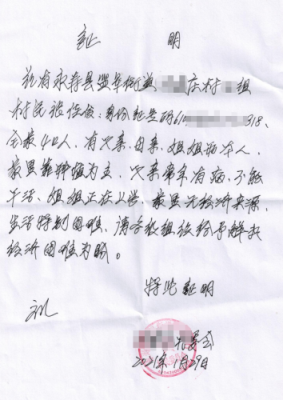 证 明
兹有永寿县监军街道 庄村 组
村民张 ,身份证号码61 318,
全家4口人,有父亲、母亲、姐姐和本人。
家里靠种植为主,父亲常年有病,不能
干活,姐姐正在上学,家里无经济来源,
生活特别困难,请各校组织给予解决
经济困难为盼。
特此证明
村委会
2021年1月29日